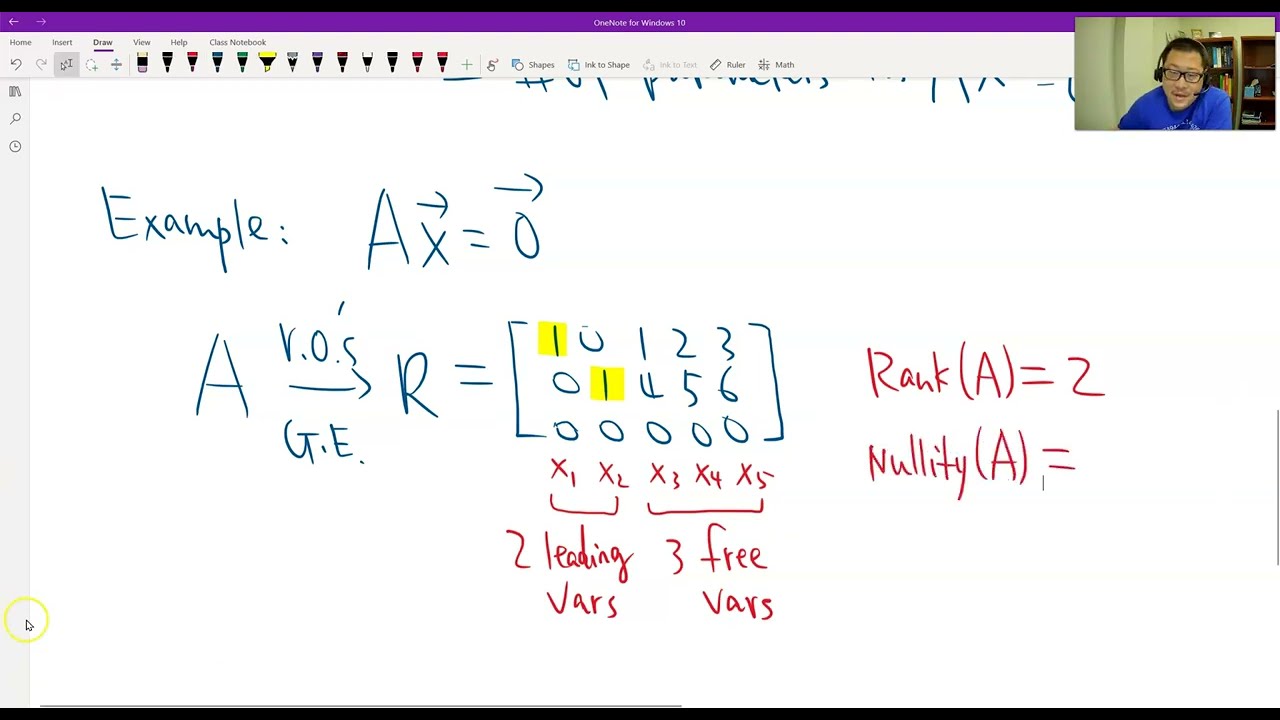 OneNote for Windows 10
Home Insert Draw View Help Class Notebook
Shapes Ink to Shape Ink to Text Ruler Math
Example: Ax⃗ = 0⃗
A r.o.'s G.E. → R = [1 0 1 2 3
0 1 4 5 6
0 0 0 0 0]
x₁ x₂ x₃ x₄ x₅
2 leading vars
3 free vars
Rank(A) = 2
Nullity(A) =